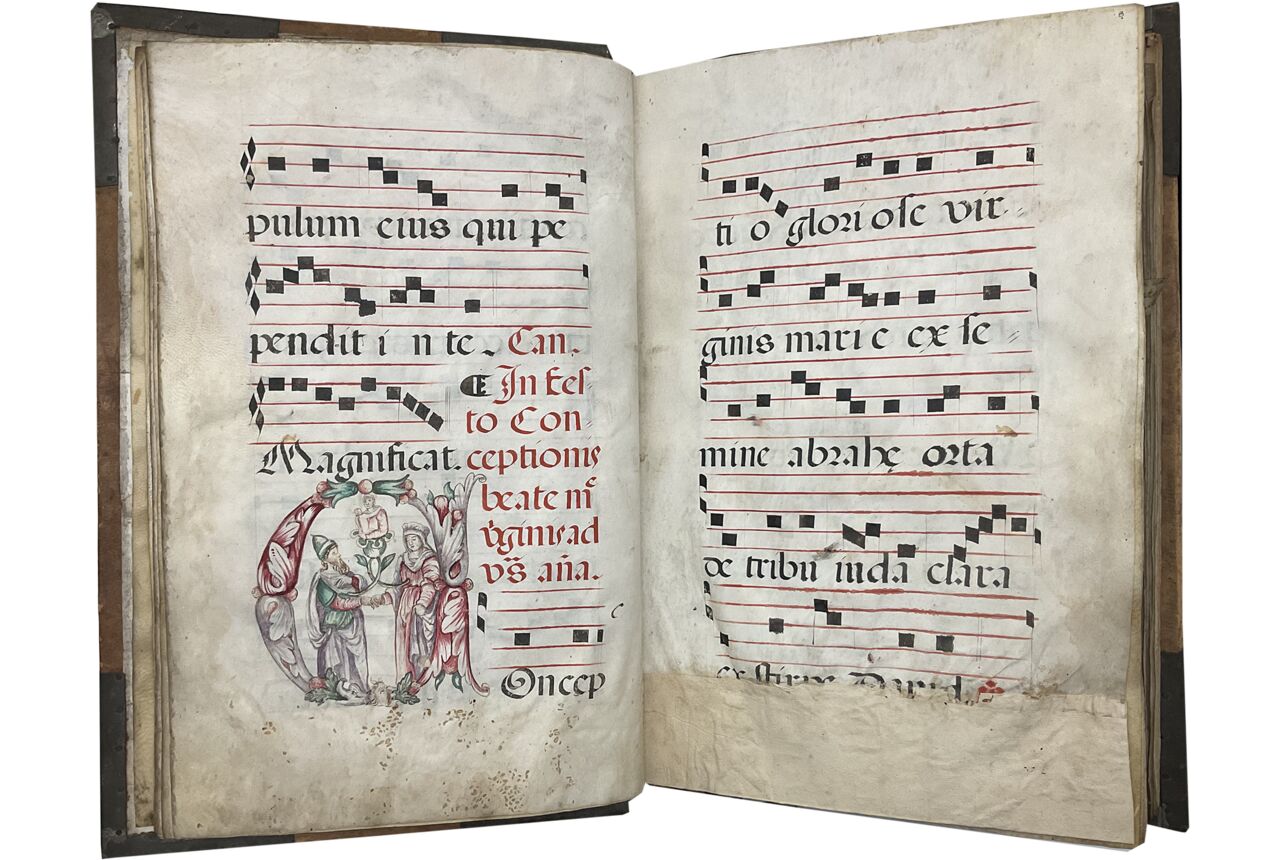 pulum eius qui pe
pendit i n te. Can.
¶ In fes-
to Con-
Magnificat. ceptionis
beate mͤ
v̄ginis ad
vs̄ an̄a.
COncep
ti o glori ose vir-
ginis mari e ex se
mine abrahę orta
de tribu iuda clara
ex stirpe David.